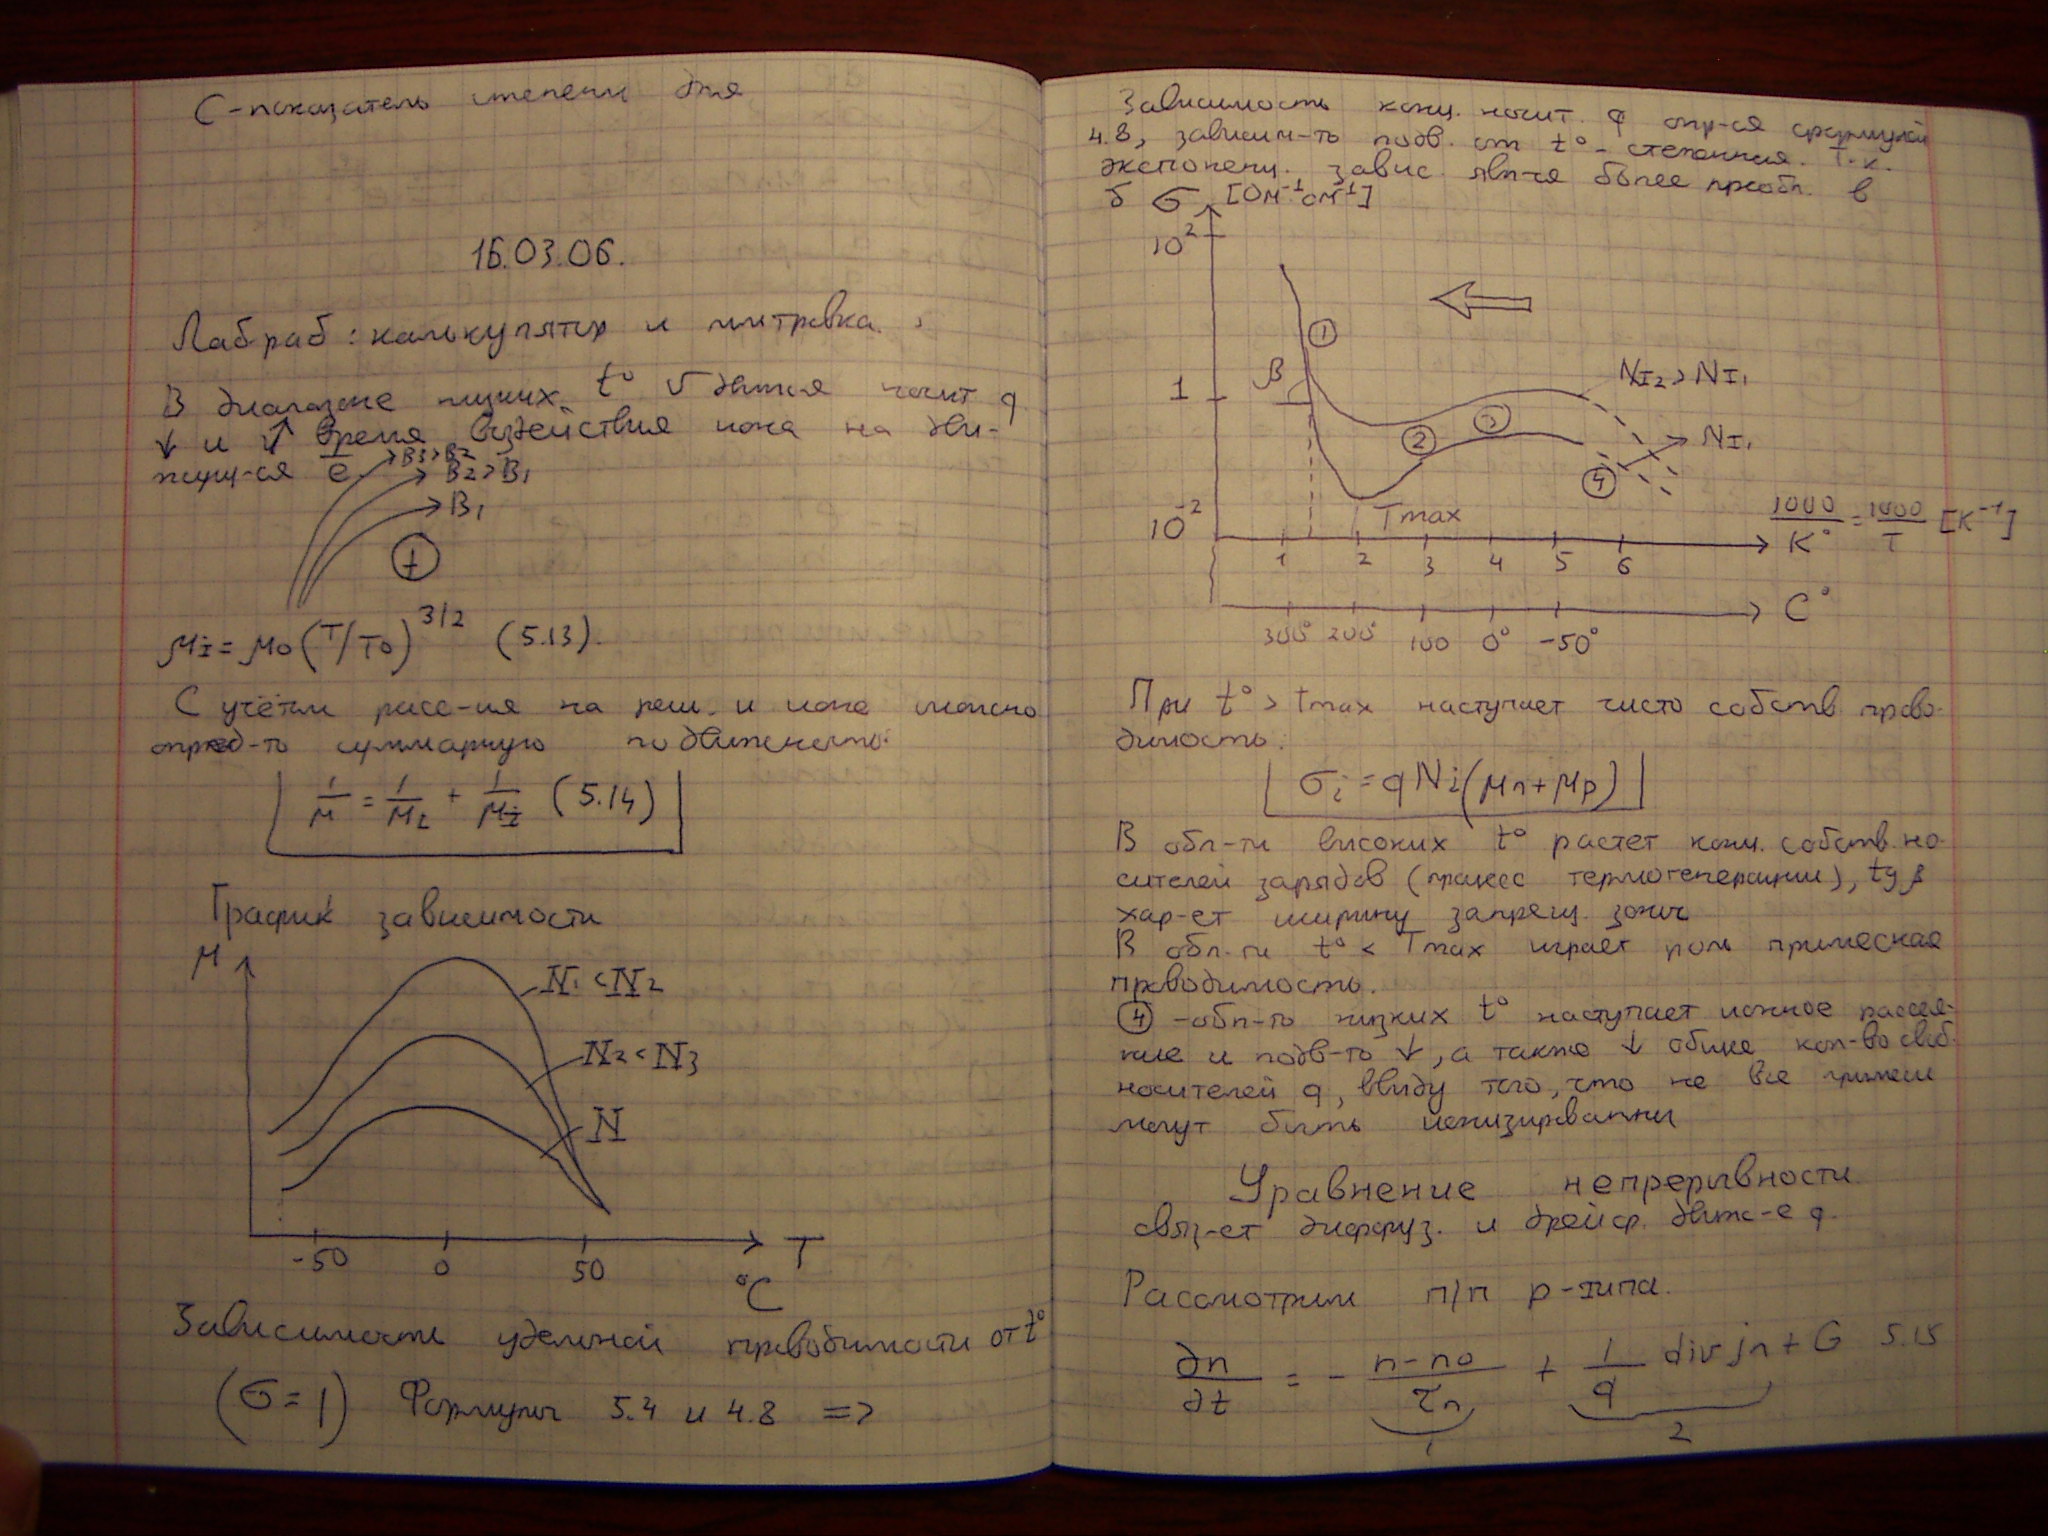 С-показатель степени для
16.03.06.
Лаб раб: калькулятор и миллиметровка.
В диапазоне низких t° v движ-я носит q
↓ и ↑ время воздействия иона на дви-
жущ-ся e
B3>B2
B2>B1
B1
+
μI = μ0 (T/T0)^3/2 (5.13).
С учётом расс-ия на реш. и ионе можно
опред-ть суммарную подвижность:
1/μ = 1/μL + 1/μI (5.14)
График зависимости
μ
N1 < N2
N2 < N3
N
-50 0 50 T
°C
Зависимость удельной проводимости от t°
(σ = 1) Формулы 5.4 и 4.8 =>
Зависимость конц. носит. q опр-ся формулой
4.8, зависим-ть подв. от t° - степенная. Т.к.
экспоненц. завис. явл-ся более преобл. в
σ [Ом^-1 см^-1]
10^2
1
β
10^-2
1
2
3
4
NI2 > NI1
NI1
Tmax
1000/K° = 1000/T [K^-1]
1 2 3 4 5 6
C°
300° 200° 100 0° -50°
При t° > tmax наступает чисто собств. прово-
димость:
σi = qNi(μn+μp)
В обл-ти високих t° растет конц. собств. но-
сителей зарядов (процесс термогенерации), tg β
хар-ет ширину запрещ. зоны
В обл-ти t° < Tmax играет роль примесная
проводимость.
4 - обл-ть низких t° наступает ионное рассея-
ние и подв-ть ↓, а также ↓ общее кол-во своб.
носителей q, ввиду того, что не все примеси
могут быть ионизированны
Уравнение непрерывности
связ-ет диффуз. и дрейф. движ-е q.
Рассмотрим п/п p-типа.
∂n/∂t = - n-n0/τn + 1/q div jn + G 5.15
1 2